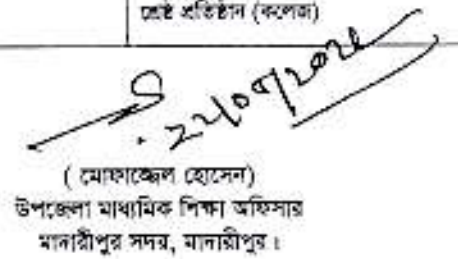 শ্রেষ্ঠ প্রতিষ্ঠান (কলেজ)
( মোফাজ্জেল হোসেন)
উপজেলা মাধ্যমিক শিক্ষা অফিসার
মাদারীপুর সদর, মাদারীপুর।